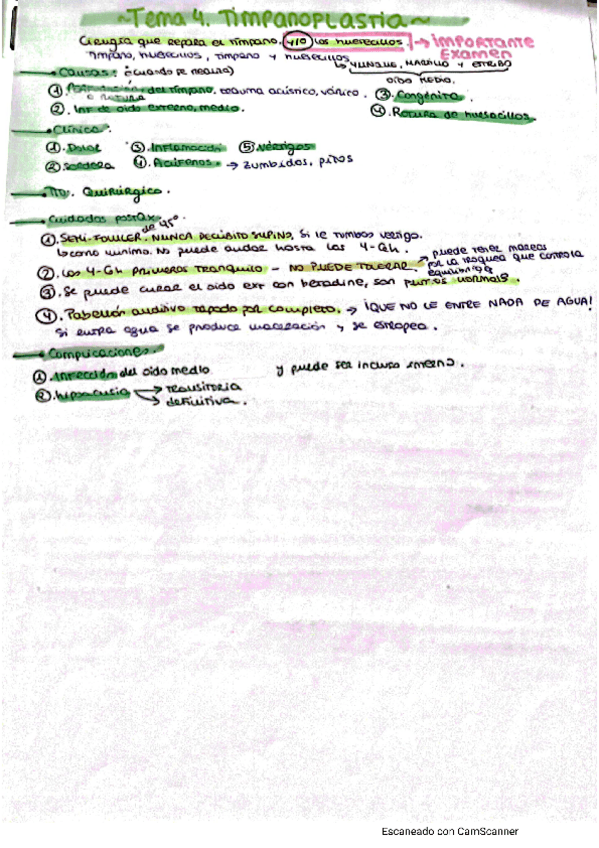 ~Tema 4. Timpanoplastia~
Cirugía que repara el tímpano, y/o los huesecillos. → IMPORTANTE Examen
Tímpano, huesecillos, tímpano y huesecillos
↳ YUNQUE, MARTILLO Y ESTRIBO
OÍDO MEDIO.
Causas: (cuando se realiza)
① Perforación del tímpano, trauma acústico, vírico. ③ Congénita.
o rotura
② Inf de oído externo, medio. ④ Rotura de huesecillos.
Clínica:
① Dolor ③ Inflamación ⑤ Vértigos
② Sordera ④ Acúfenos → zumbidos, pitos
TTO: Quirúrgico.
Cuidados postqx:
① SEMI-FOWLER de 45º. NUNCA DECÚBITO SUPINO, si le tumbas vértigo.
↳ como mínimo. No puede andar hasta las 4-6h.
② Las 4-6h primeros tranquilo - NO PUEDE TOLERAR. → puede tener mareos
por la que controla
equilibrio
③ Se puede curar el oído ext con betadine, son puntos normales.
④ Pabellón auditivo tapado por completo. → ¡QUE NO LE ENTRE NADA DE AGUA!
Si entra agua se produce maceración y se estropea.
Complicaciones:
① Infección del oído medio y puede ser incluso interno.
② hipoacusia → transitoria
→ definitiva.
Escaneado con CamScanner